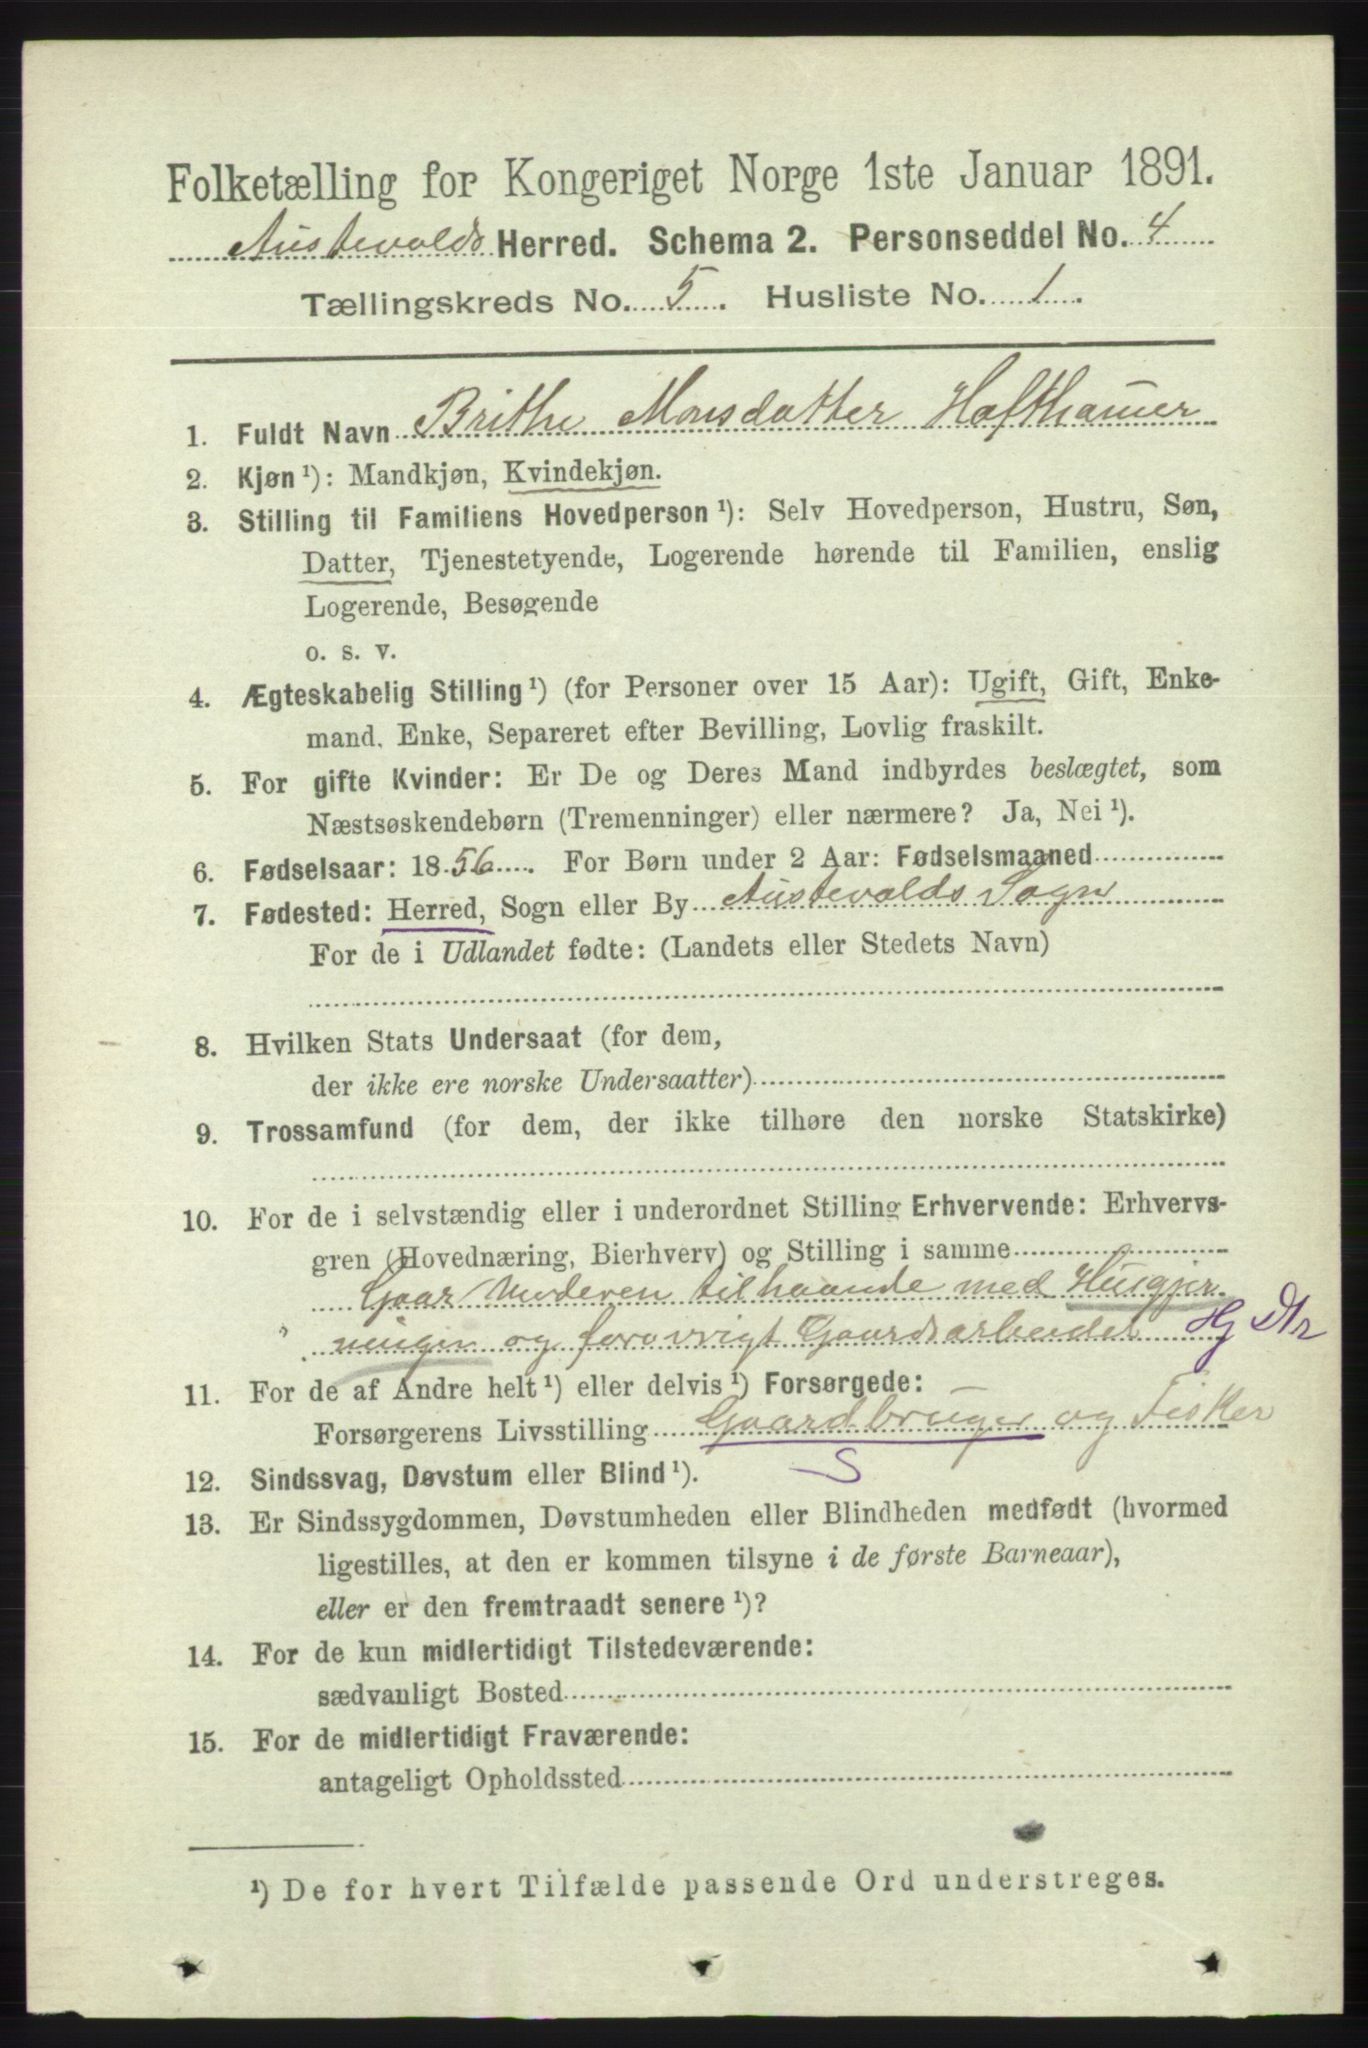 Folketælling for Kongeriget Norge 1ste Januar 1891.
Austevolds Herred. Schema 2. Personseddel No. 4
Tællingskreds No. 5. Husliste No. 1.
1. Fuldt Navn Brithe Monsdatter Hafthamer
2. Kjøn ¹): Mandkjøn, Kvindekjøn.
3. Stilling til Familiens Hovedperson ¹): Selv Hovedperson, Hustru, Søn,
Datter, Tjenestetyende, Logerende hørende til Familien, enslig
Logerende, Besøgende
o. s. v.
4. Ægteskabelig Stilling ¹) (for Personer over 15 Aar): Ugift, Gift, Enke-
mand, Enke, Separeret efter Bevilling, Lovlig fraskilt.
5. For gifte Kvinder: Er De og Deres Mand indbyrdes beslægtet, som
Næstsøskendebørn (Tremenninger) eller nærmere? Ja, Nei ¹).
6. Fødselsaar: 1856. For Børn under 2 Aar: Fødselsmaaned
7. Fødested: Herred, Sogn eller By Austevolds Sogn
For de i Udlandet fødte: (Landets eller Stedets Navn)
8. Hvilken Stats Undersaat (for dem,
der ikke ere norske Undersaatter)
9. Trossamfund (for dem, der ikke tilhøre den norske Statskirke)
10. For de i selvstændig eller i underordnet Stilling Erhvervende: Erhvervs-
gren (Hovednæring, Bierhverv) og Stilling i samme
Gaar Moderen tilhaande med Husgjer-
ninger og forøvrigt Gaardsarbeidet Hg Dtr
11. For de af Andre helt ¹) eller delvis ¹) Forsørgede:
Forsørgerens Livsstilling Gaardbruger og Fisker
S
12. Sindssvag, Døvstum eller Blind ¹).
13. Er Sindssygdommen, Døvstumheden eller Blindheden medfødt (hvormed
ligestilles, at den er kommen tilsyne i de første Barneaar),
eller er den fremtraadt senere ¹)?
14. For de kun midlertidigt Tilstedeværende:
sædvanligt Bosted
15. For de midlertidigt Fraværende:
antageligt Opholdssted
¹) De for hvert Tilfælde passende Ord understreges.